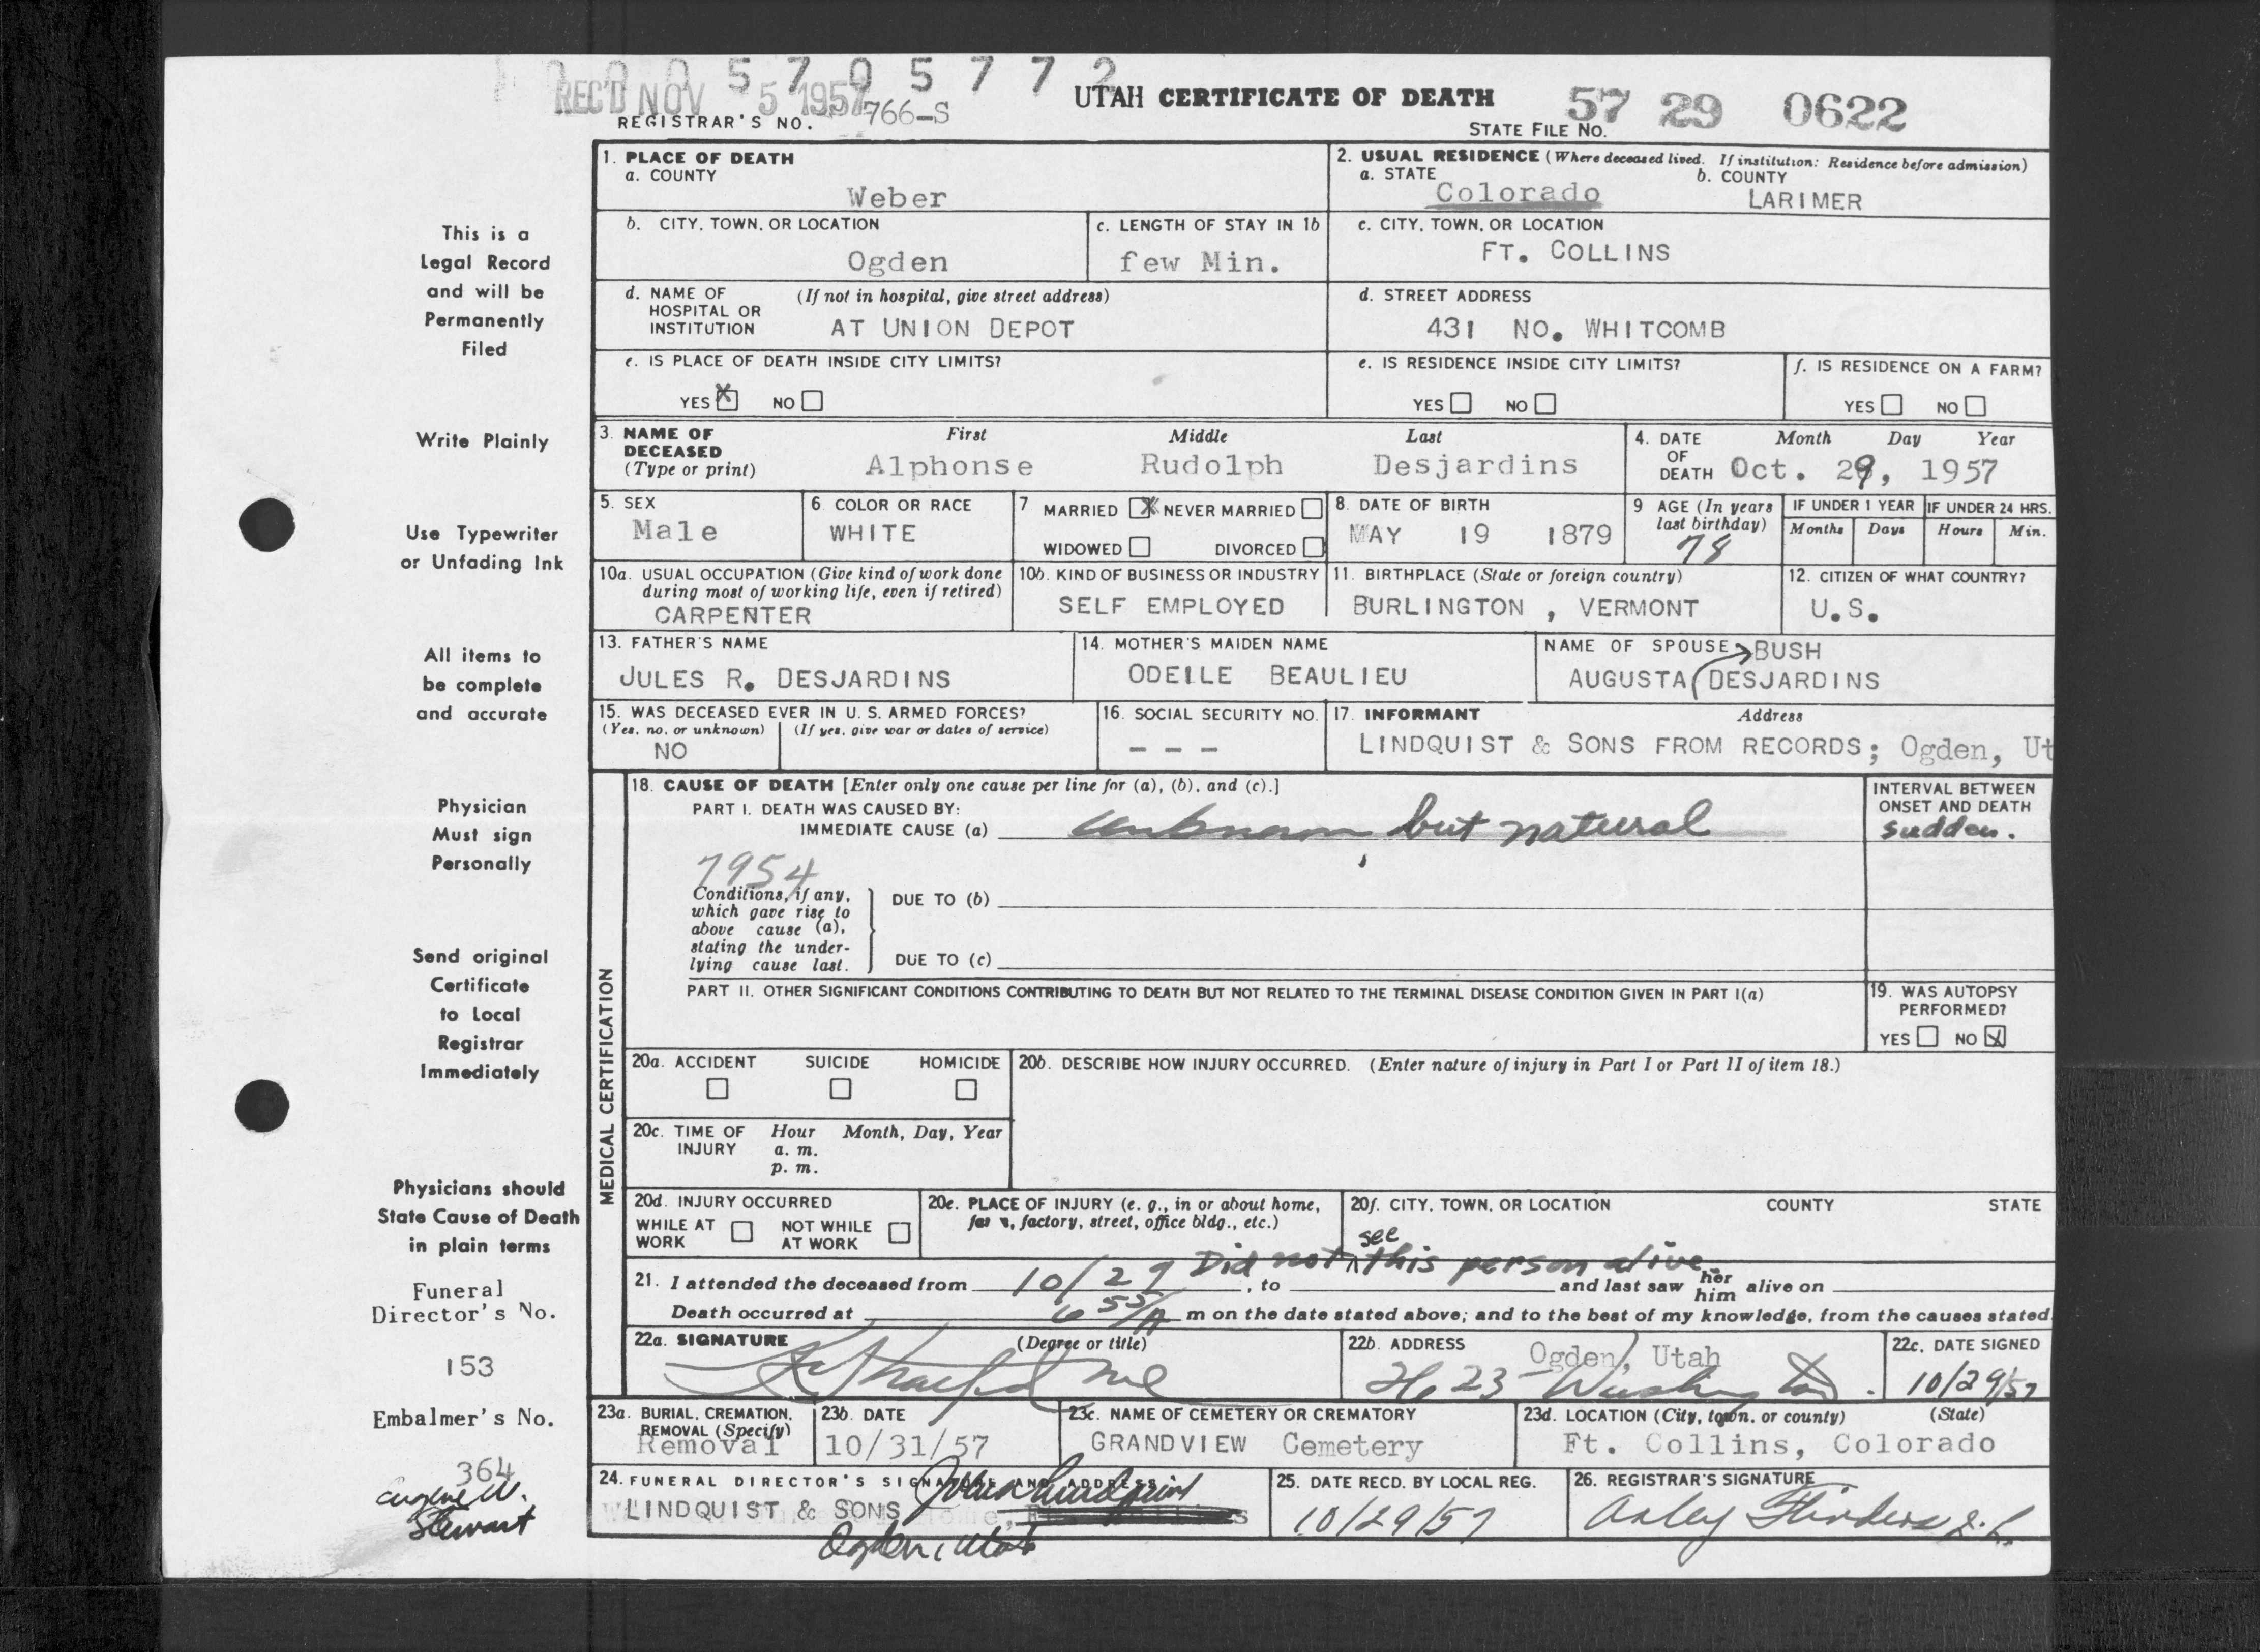 0 0 0 5 7 0 5 7 7 2
REC'D NOV 5 1957
REGISTRAR'S NO. 766-S
UTAH CERTIFICATE OF DEATH
STATE FILE NO. 57 29 0622
1. PLACE OF DEATH
a. COUNTY
Weber
2. USUAL RESIDENCE (Where deceased lived. If institution: Residence before admission)
a. STATE Colorado
b. COUNTY LARIMER
b. CITY, TOWN, OR LOCATION
Ogden
c. LENGTH OF STAY IN 1b
few Min.
c. CITY, TOWN, OR LOCATION
FT. COLLINS
d. NAME OF HOSPITAL OR INSTITUTION (If not in hospital, give street address)
AT UNION DEPOT
d. STREET ADDRESS
431 NO. WHITCOMB
e. IS PLACE OF DEATH INSIDE CITY LIMITS?
YES X NO
e. IS RESIDENCE INSIDE CITY LIMITS?
YES NO
f. IS RESIDENCE ON A FARM?
YES NO
3. NAME OF DECEASED (Type or print)
First Middle Last
Alphonse Rudolph Desjardins
4. DATE OF DEATH
Month Day Year
Oct. 29, 1957
5. SEX
Male
6 COLOR OR RACE
WHITE
7 MARRIED X NEVER MARRIED
WIDOWED DIVORCED
8. DATE OF BIRTH
MAY 19 1879
9 AGE (In years last birthday)
78
IF UNDER 1 YEAR
Months Days
IF UNDER 24 HRS.
Hours Min.
10a. USUAL OCCUPATION (Give kind of work done during most of working life, even if retired)
CARPENTER
10b. KIND OF BUSINESS OR INDUSTRY
SELF EMPLOYED
11. BIRTHPLACE (State or foreign country)
BURLINGTON , VERMONT
12. CITIZEN OF WHAT COUNTRY?
U.S.
13. FATHER'S NAME
JULES R. DESJARDINS
14. MOTHER'S MAIDEN NAME
ODEILE BEAULIEU
NAME OF SPOUSE BUSH
AUGUSTA DESJARDINS
15. WAS DECEASED EVER IN U. S. ARMED FORCES?
(Yes, no, or unknown) (If yes, give war or dates of service)
NO
16. SOCIAL SECURITY NO.
- - -
17. INFORMANT Address
LINDQUIST & SONS FROM RECORDS; Ogden, Ut
MEDICAL CERTIFICATION
18. CAUSE OF DEATH [Enter only one cause per line for (a), (b), and (c).]
PART I. DEATH WAS CAUSED BY:
IMMEDIATE CAUSE (a) unknown but natural
INTERVAL BETWEEN ONSET AND DEATH
sudden.
7954
Conditions, if any, which gave rise to above cause (a), stating the underlying cause last.
DUE TO (b)
DUE TO (c)
PART II. OTHER SIGNIFICANT CONDITIONS CONTRIBUTING TO DEATH BUT NOT RELATED TO THE TERMINAL DISEASE CONDITION GIVEN IN PART I(a)
19. WAS AUTOPSY PERFORMED?
YES NO X
20a. ACCIDENT SUICIDE HOMICIDE
20b. DESCRIBE HOW INJURY OCCURRED. (Enter nature of injury in Part I or Part II of item 18.)
20c. TIME OF INJURY
Hour Month, Day, Year
a. m.
p. m.
20d. INJURY OCCURRED
WHILE AT WORK NOT WHILE AT WORK
20e. PLACE OF INJURY (e. g., in or about home, farm, factory, street, office bldg., etc.)
20f. CITY, TOWN, OR LOCATION COUNTY STATE
Did not see this person alive
21. I attended the deceased from 10/29, to and last saw her him alive on
Death occurred at 6 55/A m on the date stated above; and to the best of my knowledge, from the causes stated
22a. SIGNATURE (Degree or title)
22b. ADDRESS Ogden, Utah
2623 Washington.
22c. DATE SIGNED
10/29/57
23a. BURIAL, CREMATION, REMOVAL (Specify)
Removal
23b. DATE
10/31/57
23c. NAME OF CEMETERY OR CREMATORY
GRANDVIEW Cemetery
23d. LOCATION (City, town, or county) (State)
Ft. Collins, Colorado
24. FUNERAL DIRECTOR'S SIGNATURE AND ADDRESS
LINDQUIST & SONS
Ogden, Utah
25. DATE RECD. BY LOCAL REG.
10/29/57
26. REGISTRAR'S SIGNATURE
This is a
Legal Record
and will be
Permanently
Filed
Write Plainly
Use Typewriter
or Unfading Ink
All items to
be complete
and accurate
Physician
Must sign
Personally
Send original
Certificate
to Local
Registrar
Immediately
Physicians should
State Cause of Death
in plain terms
Funeral
Director's No.
153
Embalmer's No.
364
Eugene W.
Stewart